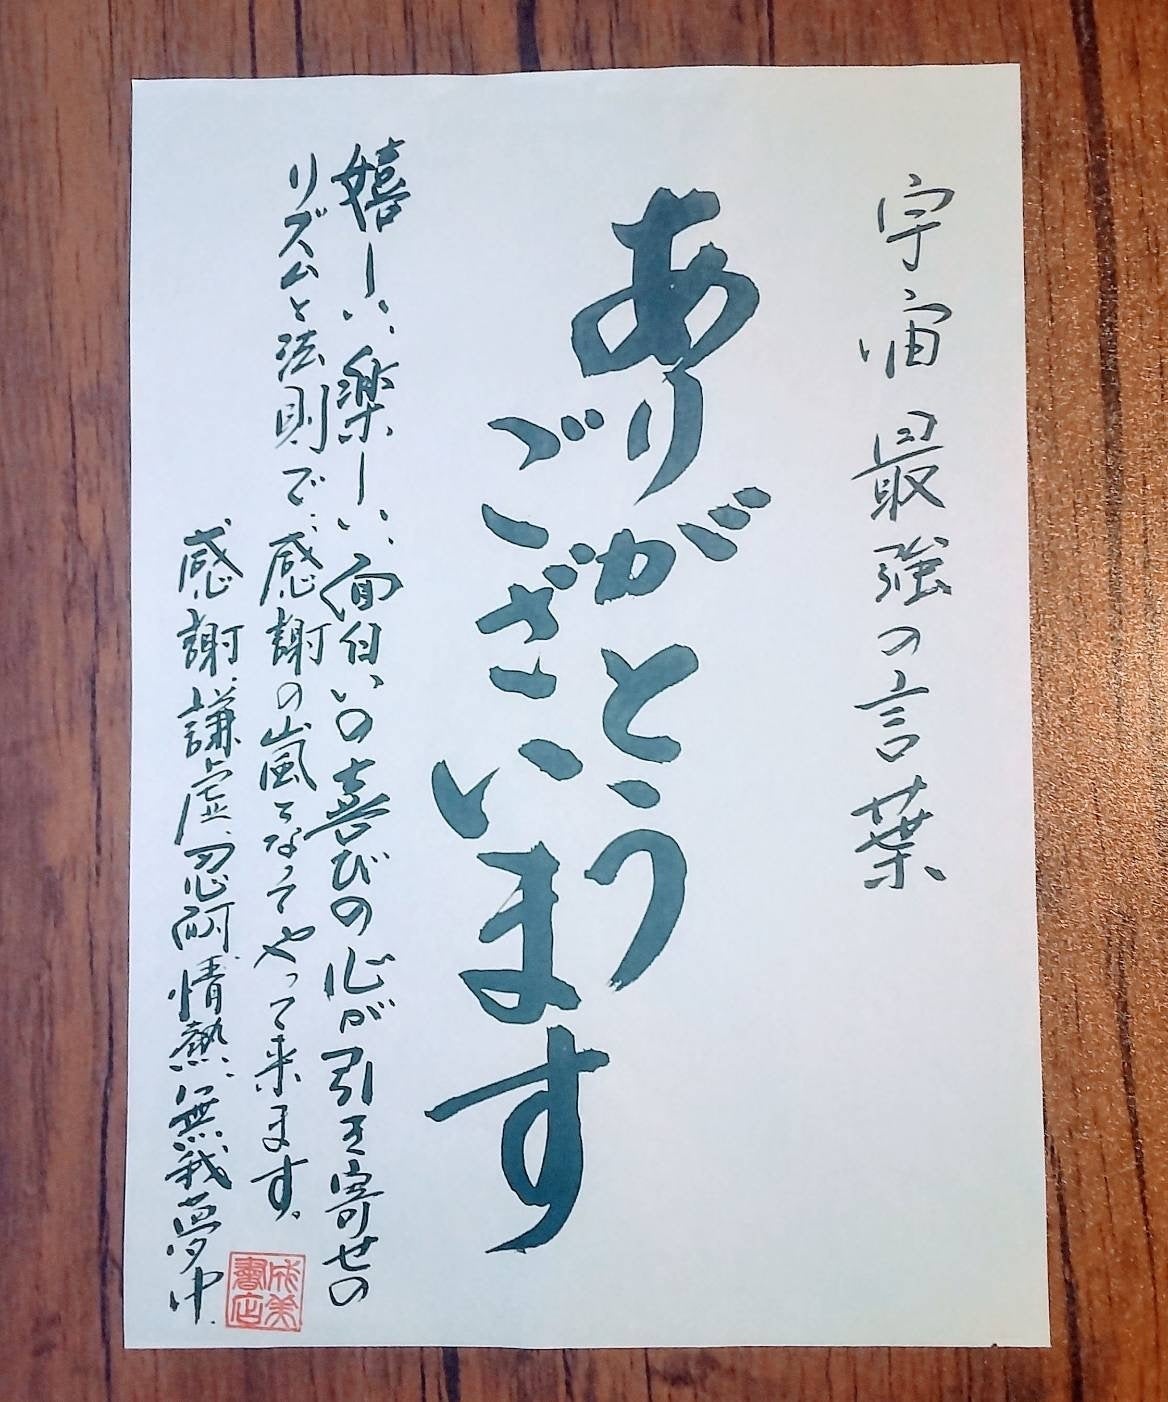 宇宙最強の言葉
ありがとう
ございます
嬉しい、楽しい、面白いの喜びの心が引き寄せの
リズムと法則で、感謝の嵐となってやって来ます。
感謝、謙虚、忍耐、情熱、無我夢中
成美
書店